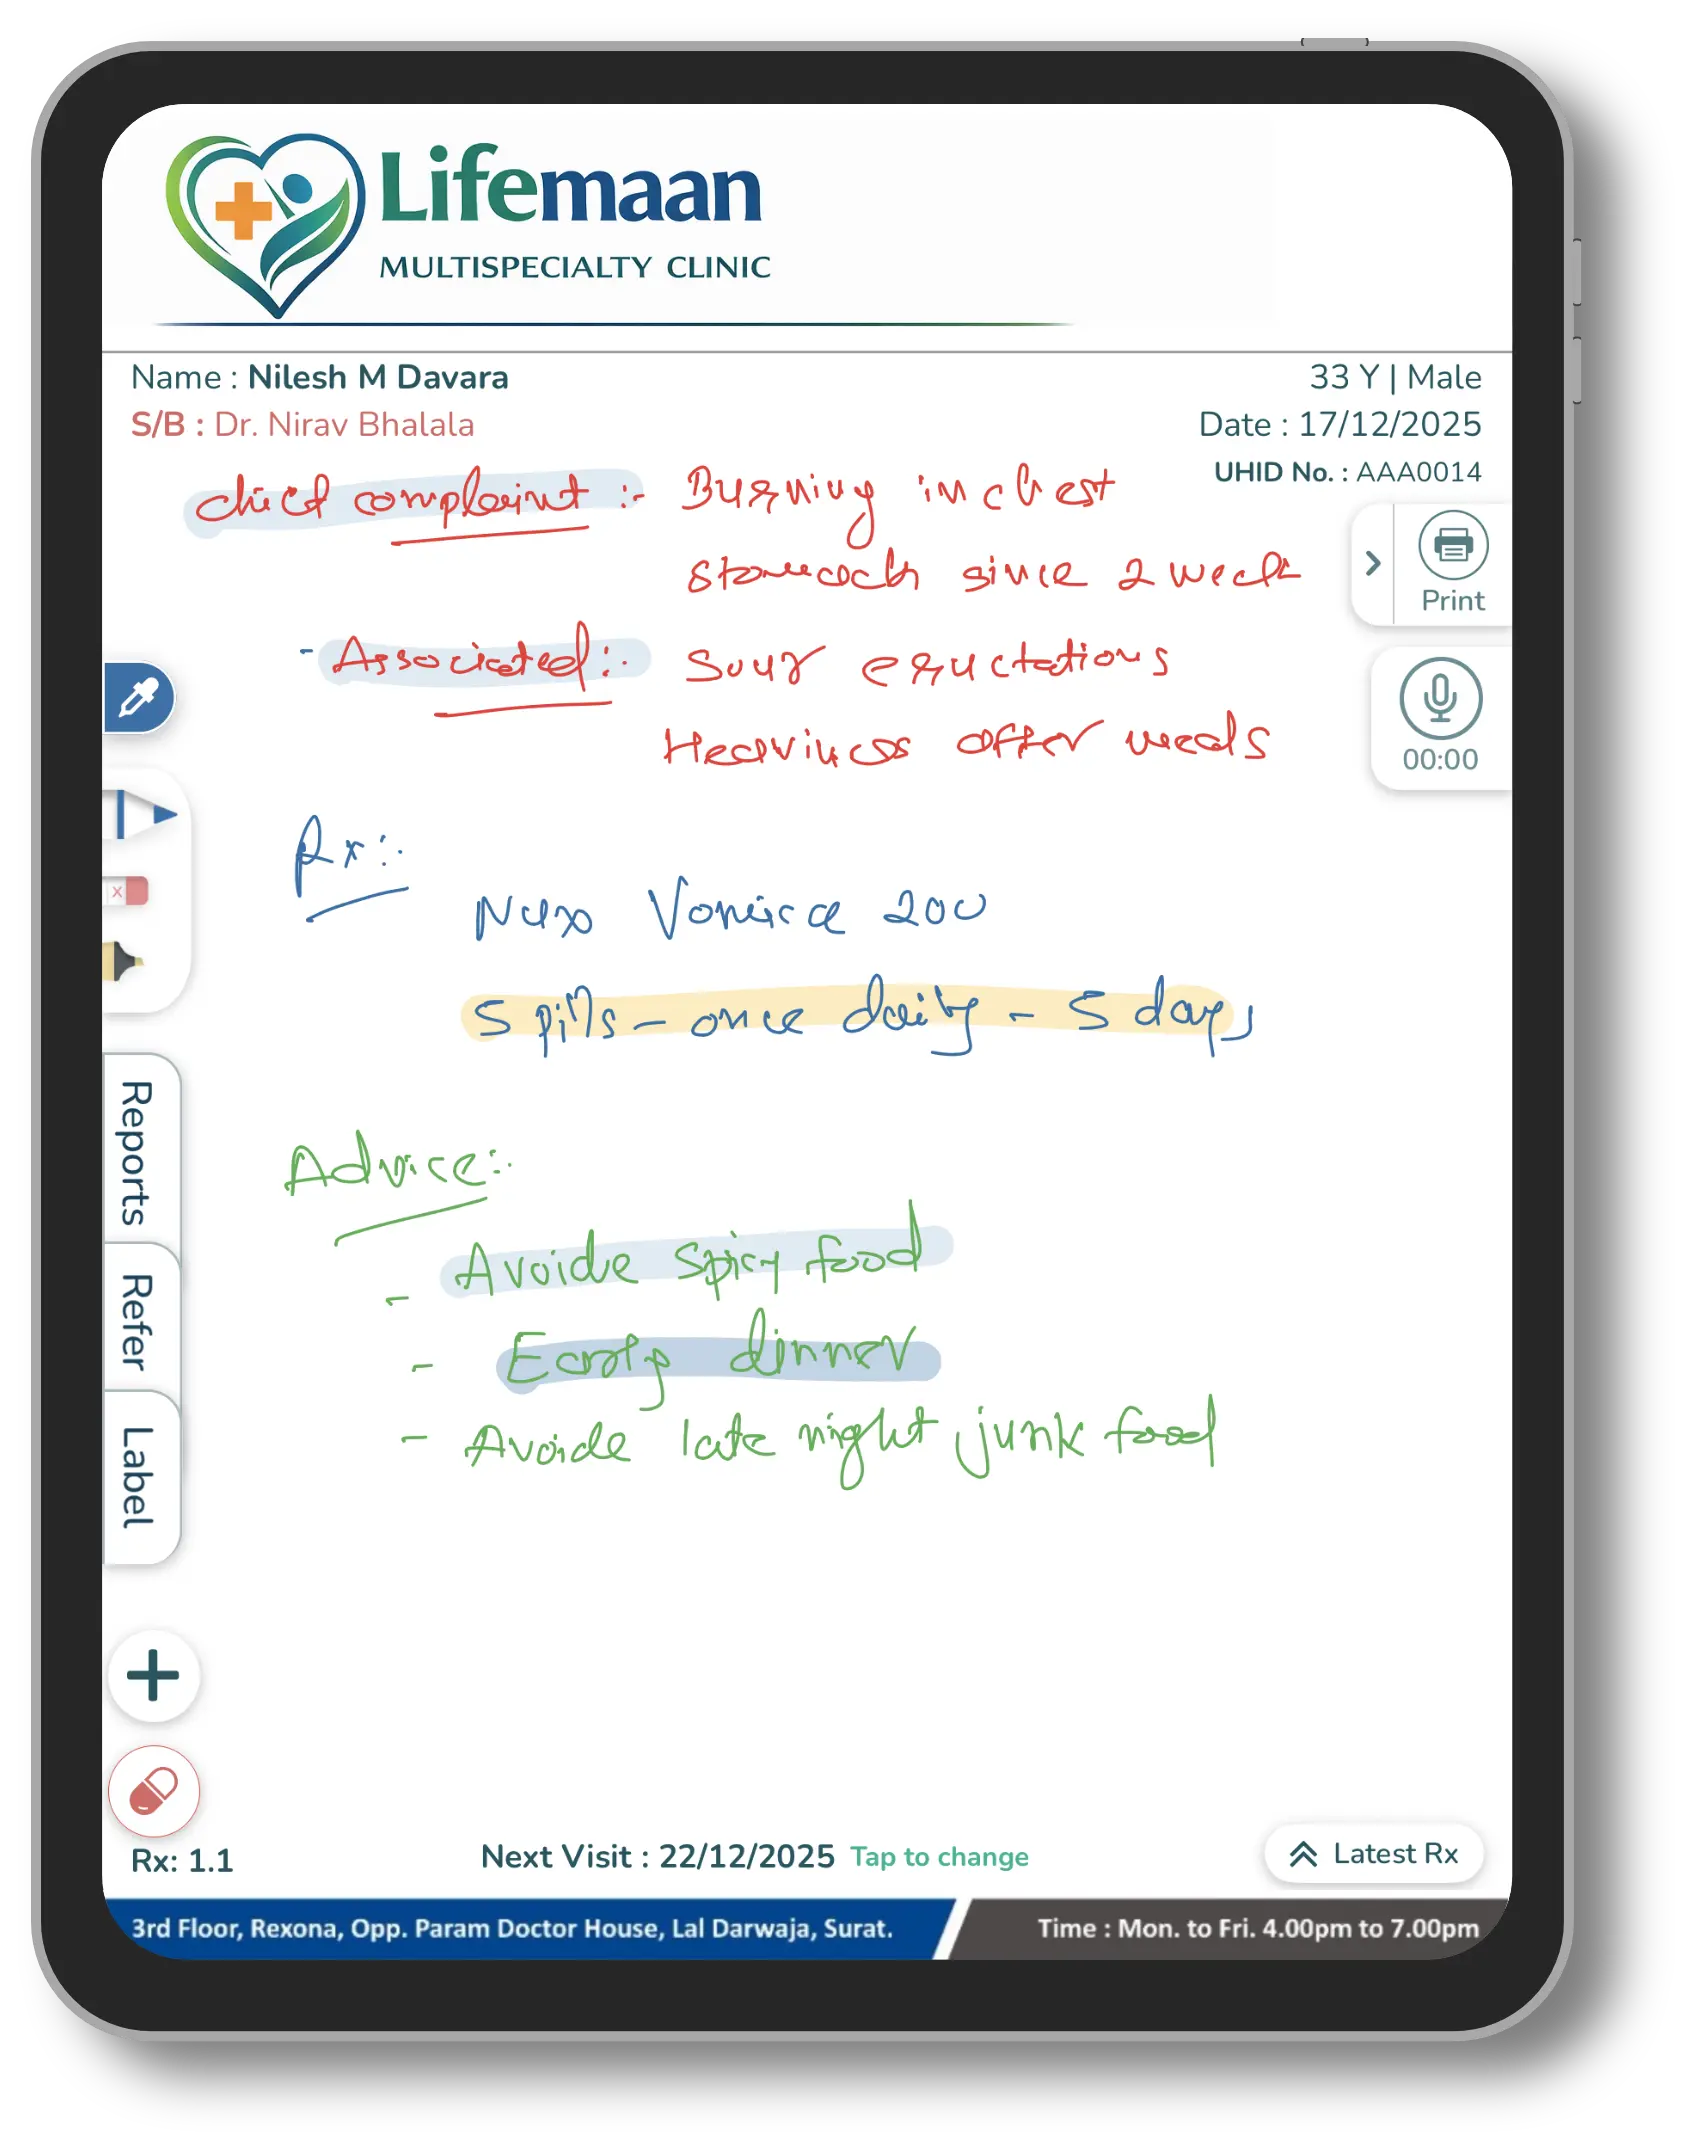 Lifemaan
MULTISPECIALTY CLINIC
Name : Nilesh M Davara
33 Y | Male
S/B : Dr. Nirav Bhalala
Date : 17/12/2025
UHID No. : AAA0014
Chief complaint :- Burning in chest
stomach since 2 week
Print
- Associated :- Sour eructations
Heaviness after meals
00:00
Rx :-
Nux Vomica 200
5 pills - once daily - 5 days
Advice :-
- Avoide spicy food
- Early dinner
- Avoide late night junk food
Reports
Refer
Label
Rx: 1.1
Next Visit : 22/12/2025 Tap to change
Latest Rx
3rd Floor, Rexona, Opp. Param Doctor House, Lal Darwaja, Surat.
Time : Mon. to Fri. 4.00pm to 7.00pm